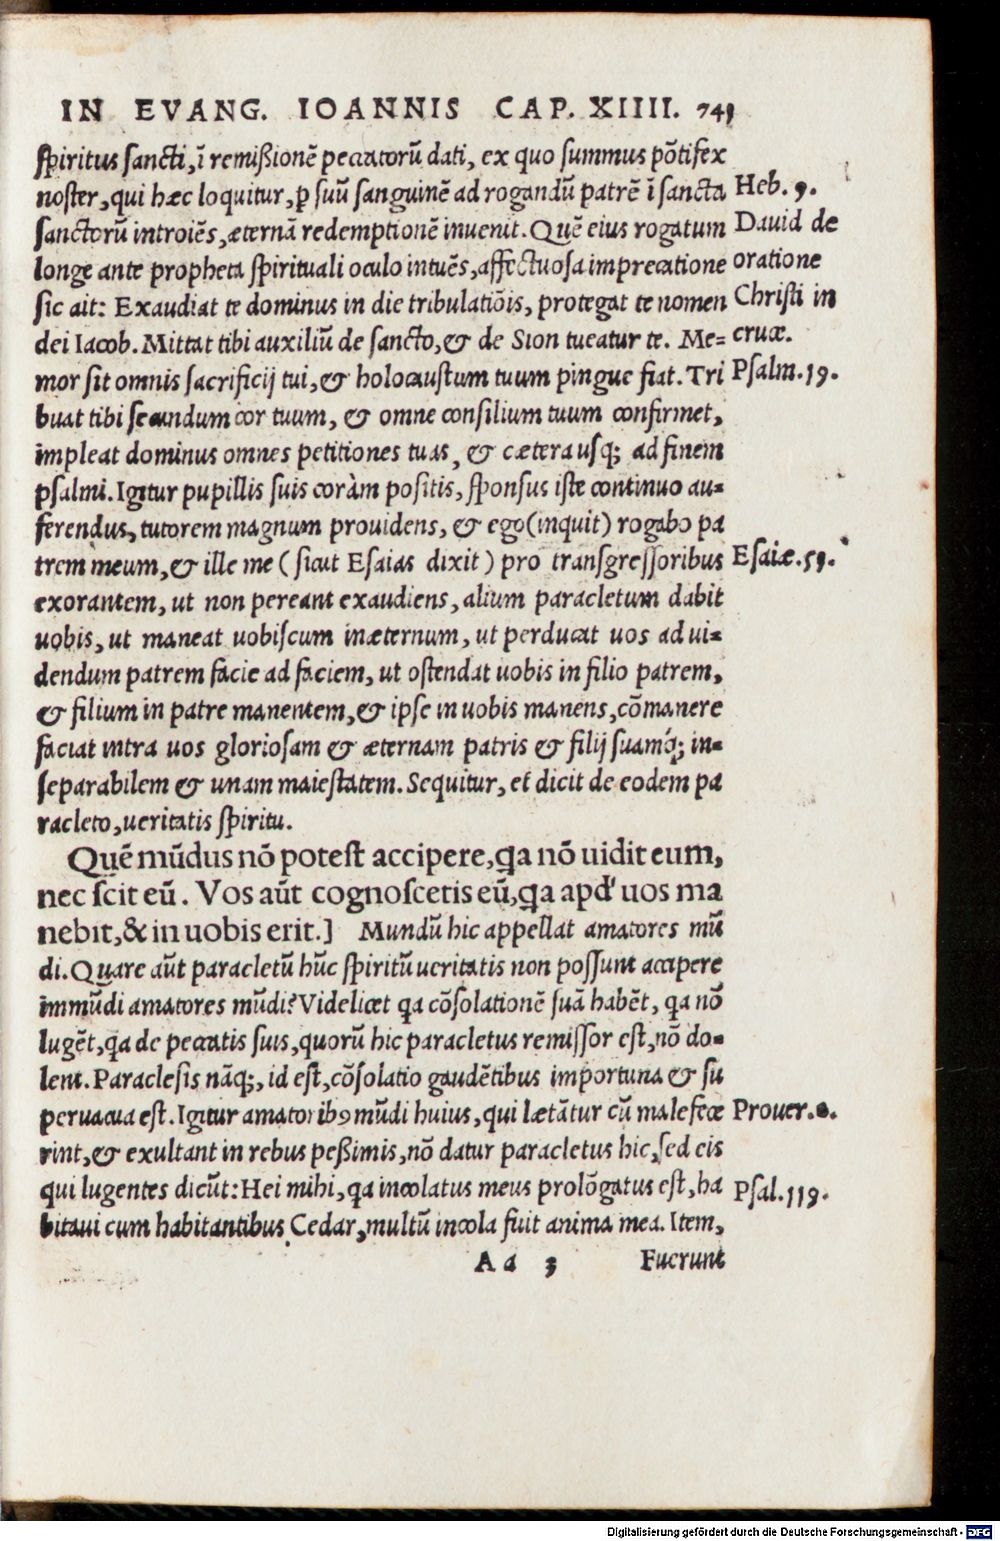 IN EVANG. IOANNIS CAP. XIIII. 741
spiritus sancti, ĩ remißionẽ peccatorũ dati, ex quo summus põtifex
noster, qui hæc loquitur, ꝑ suũ sanguinẽ ad rogandũ patrẽ ĩ sancta
Heb. 9.
sanctorũ introiẽs, æternã redemptionẽ inuenit. Quẽ eius rogatum
David de
longe ante propheta spirituali oculo intuẽs, affectuosa imprecatione
oratione
sic ait: Exaudiat te dominus in die tribulatiõis, protegat te nomen
Christi in
dei Iacob. Mittat tibi auxiliũ de sancto, & de Sion tueatur te. Me=
cruæ.
mor sit omnis sacrificij tui, & holocaustum tuum pingue fiat. Tri
Psalm. 19.
buat tibi secundum cor tuum, & omne consilium tuum confirmet,
impleat dominus omnes petitiones tuas, & cætera usq; ad finem
psalmi. Igitur pupillis suis coràm positis, sponsus iste continuo au=
ferendus, tutorem magnum prouidens, & ego (inquit) rogabo pa
trem meum, & ille me (sicut Esaias dixit) pro transgressoribus
Esaiæ. 53.
exorantem, ut non pereant exaudiens, alium paracletum dabit
uobis, ut maneat uobiscum inæternum, ut perducat uos ad ui=
dendum patrem facie ad faciem, ut ostendat uobis in filio patrem,
& filium in patre manentem, & ipse in uobis manens, cõmanere
faciat intra uos gloriosam & æternam patris & filij suamq́; in=
separabilem & unam maiestatem. Sequitur, et dicit de eodem pa
racleto, ueritatis spiritu.
Quẽ mũdus nõ potest accipere, ꝗa nõ uidit eum,
nec scit eũ. Vos aũt cognoscetis eũ, ꝗa apd' uos ma
nebit, & in uobis erit.] Mundũ hic appellat amatores mũ
di. Quare aũt paracletũ hũc spiritũ ueritatis non possunt accipere
immũdi amatores mũdi? Videlicet ꝗa cõsolationẽ suã habẽt, ꝗa nõ
lugẽt, ꝗa de peccatis suis, quorũ hic paracletus remissor est, nõ do=
lent. Paraclesis nãq;, id est, cõsolatio gaudẽtibus importuna & su
peruacua est. Igitur amatoribꝰ mũdi huius, qui lætãtur cũ malefece
Prouer. 2.
rint, & exultant in rebus peßimis, nõ datur paracletus hic, sed eis
qui lugentes dicũt: Hei mihi, ꝗa incolatus meus prolõgatus est, ha
Psal. 119.
bitaui cum habitantibus Cedar, multũ incola fuit anima mea. Item,
Aa 3 Fuerunt
Digitalisierung gefördert durch die Deutsche Forschungsgemeinschaft - DFG